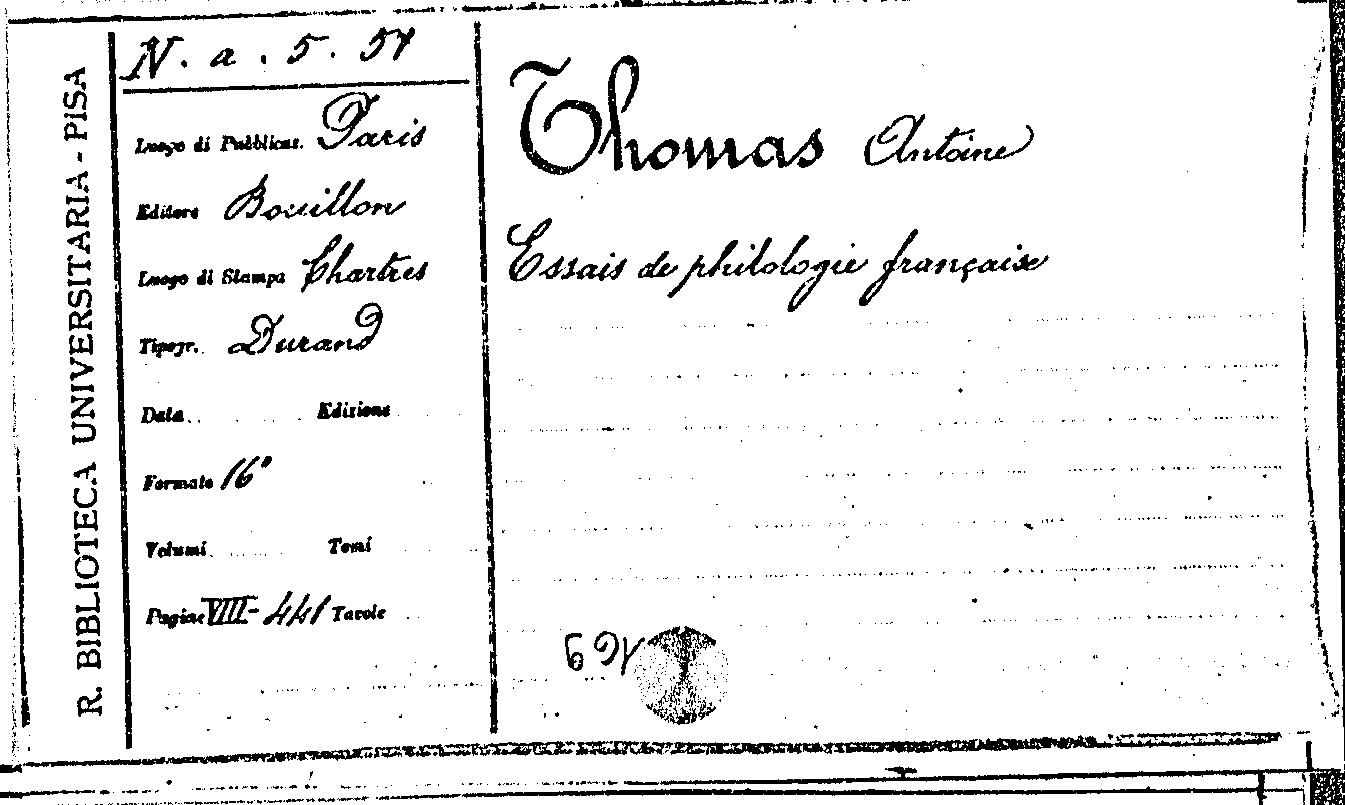 R. BIBLIOTECA UNIVERSITARIA - PISA
N. a. 5. 54
Luogo di Pubblicaz. Paris
Editore Bouillon
Luogo di Stampa Chartres
Tipogr. Durand
Data Edizione
Formato 16°
Volumi Tomi
Pagine VIII-441 Tavole
Thomas Antoine
Essais de philologie française